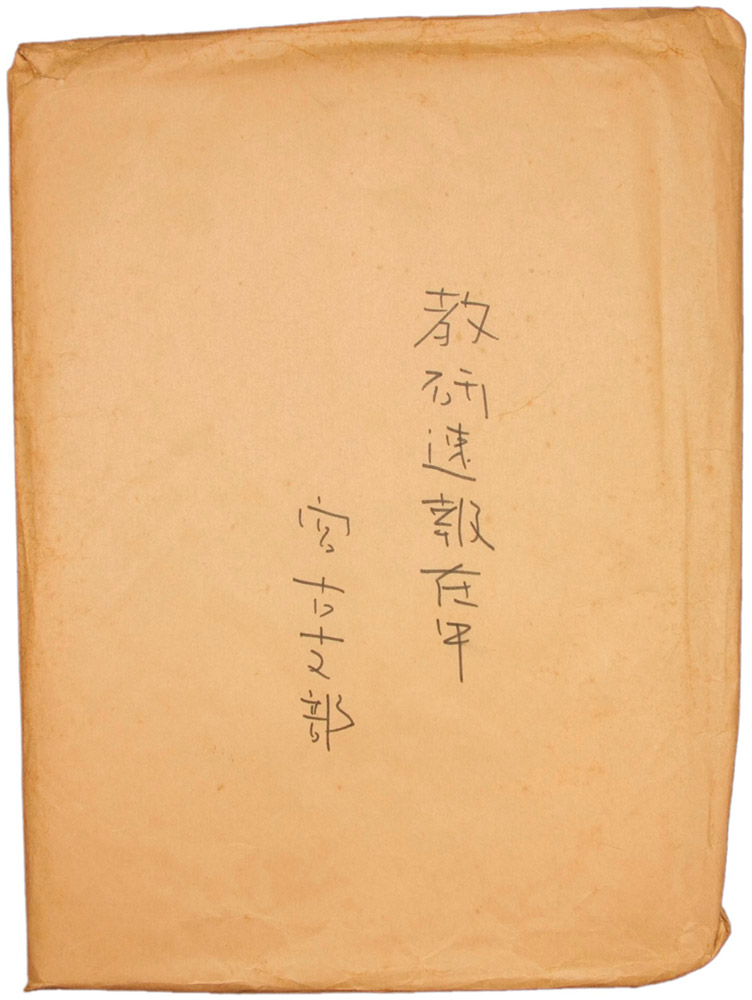 教研速報在中
宮古支部